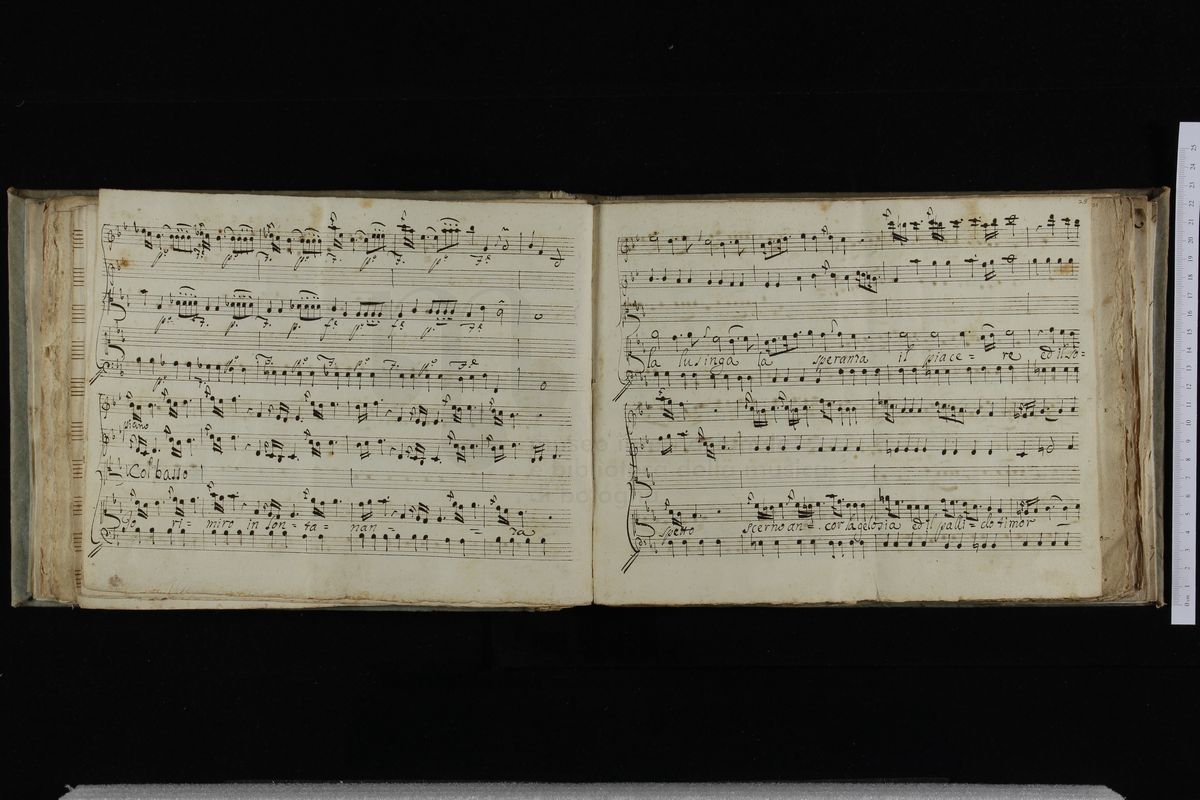 p.o f. p.o f. p.o f. p.o f. p.o f.e
p.o f. p. f.e p.o f.e p. f.e
p.o f. p.o f. p.o f. p.o f.e
piano
Col basso
Io ri= miro in lon= ta= nan= = za
25
la lusinga la speranza il piace= re ed il so=
spetto scerno an= cor la gelosia ed il palli= do timor